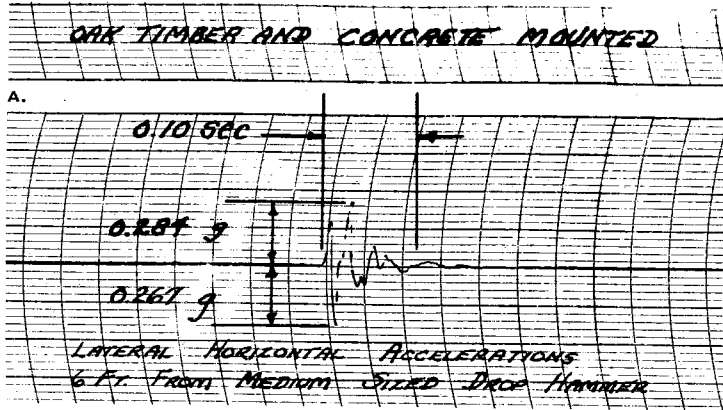 OAK TIMBER AND CONCRETE MOUNTED
A.
0.10 SEC
0.284 g
0.267 g
LATERAL HORIZONTAL ACCELERATIONS
6 FT. FROM MEDIUM SIZED DROP HAMMER